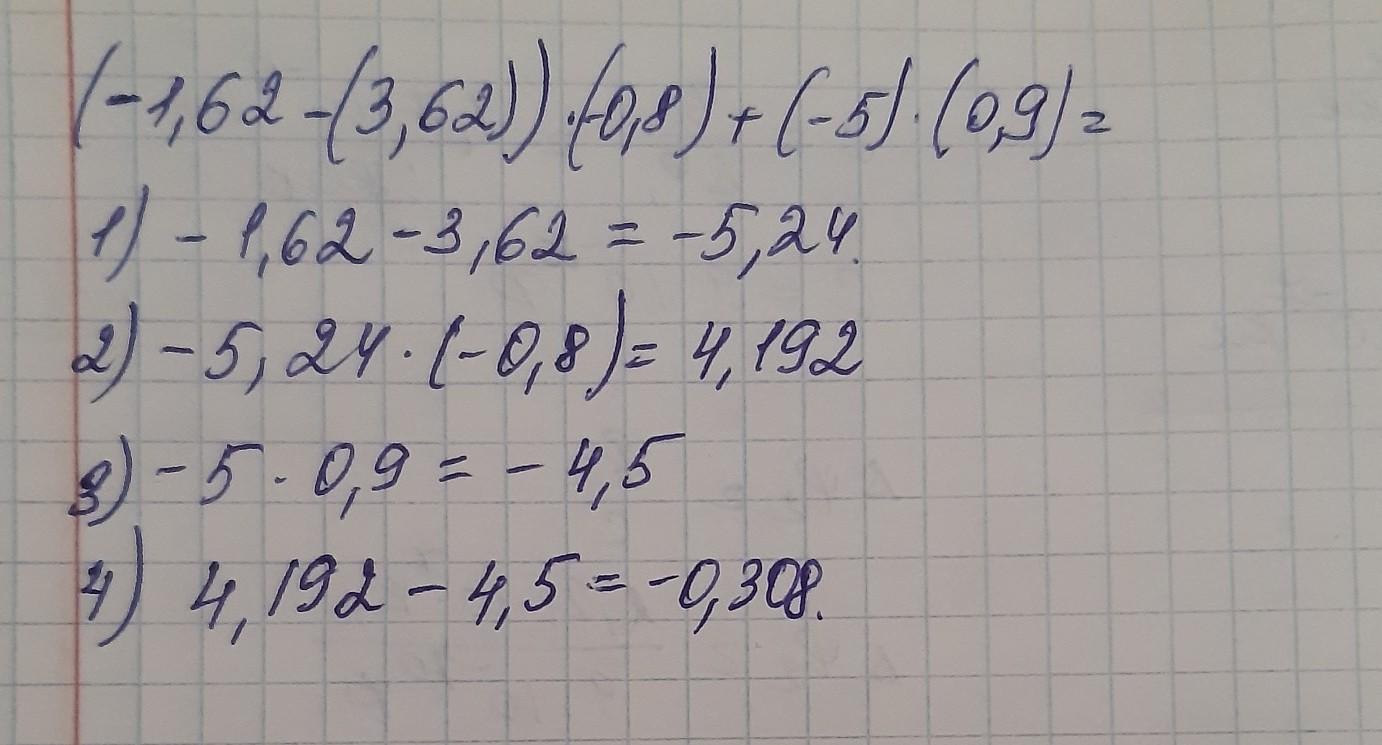 (-1,62-(3,62))·(-0,8)+(-5)·(0,9)=
1) -1,62-3,62=-5,24.
2) -5,24·(-0,8)=4,192
3) -5·0,9=-4,5
4) 4,192-4,5=-0,308.